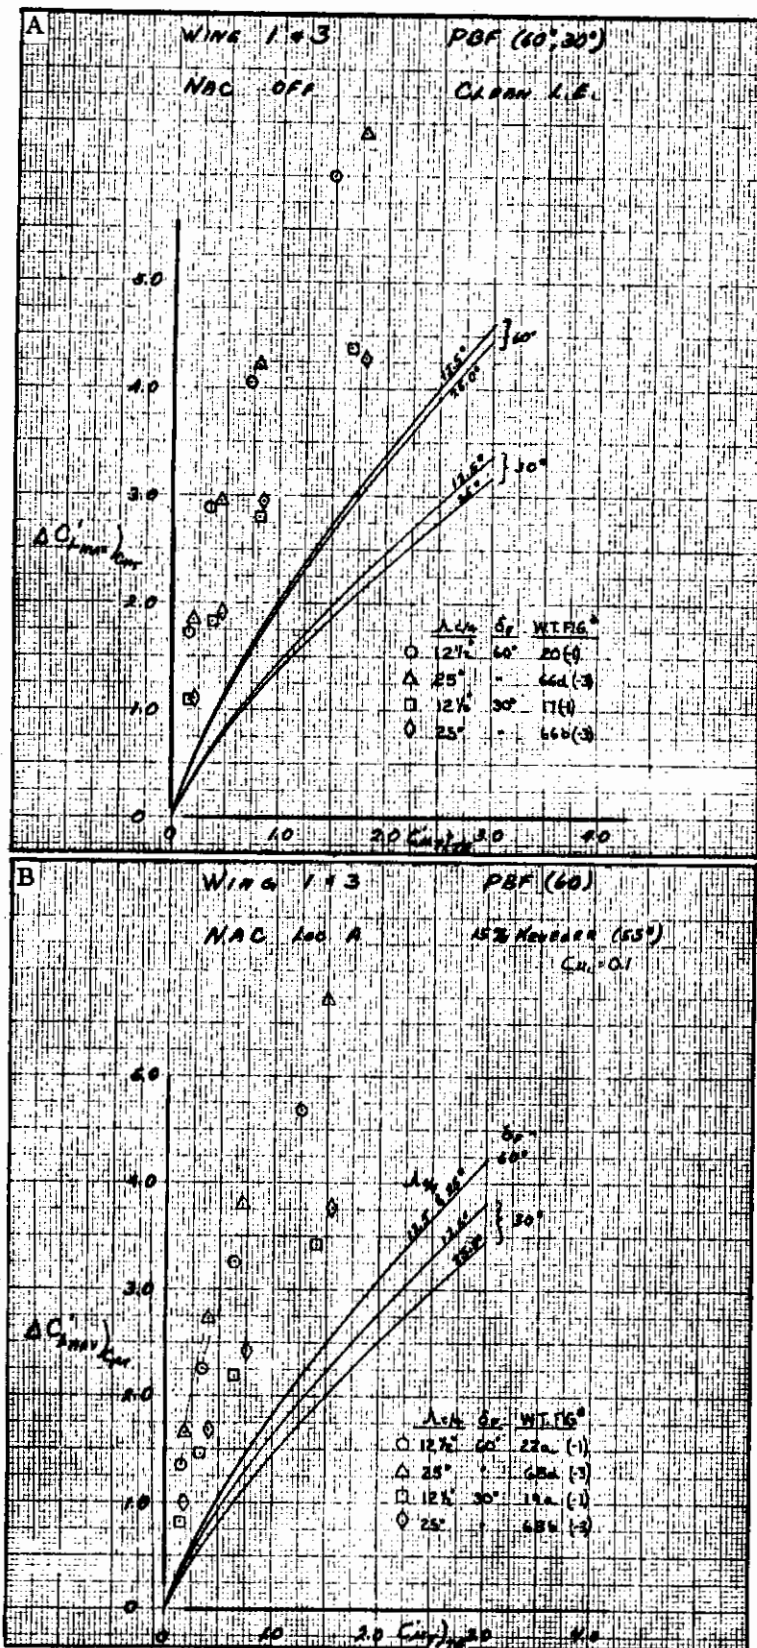 A
WING 1 & 3 PBF (60°, 30°)
NAC OFF CLEAN L.E.
5.0
4.0
3.0
2.0
1.0
0
12.5°
25.0°
} 60°
12.5°
25°
} 30°
Λc/4 δF W.T. FIG.#
○ 12½° 60° 20(-1)
△ 25° " 66d(-3)
□ 12½° 30° 17(-1)
◊ 25° " 66b(-3)
0 1.0 2.0 3.0 4.0
B
WING 1 & 3 PBF (60)
NAC LOC A 15% KRUEGER (55°)
CμL = 0.1
5.0
4.0
3.0
2.0
1.0
0
δF
60°
Λc/4
12.5 & 25°
12.5°
25.0°
} 30°
Λc/4 δF W.T. FIG#
○ 12½° 60° 22a (-1)
△ 25° " 68d (-3)
□ 12½° 30° 19a (-1)
◊ 25° " 68b (-3)
0 1.0 2.0 3.0 4.0